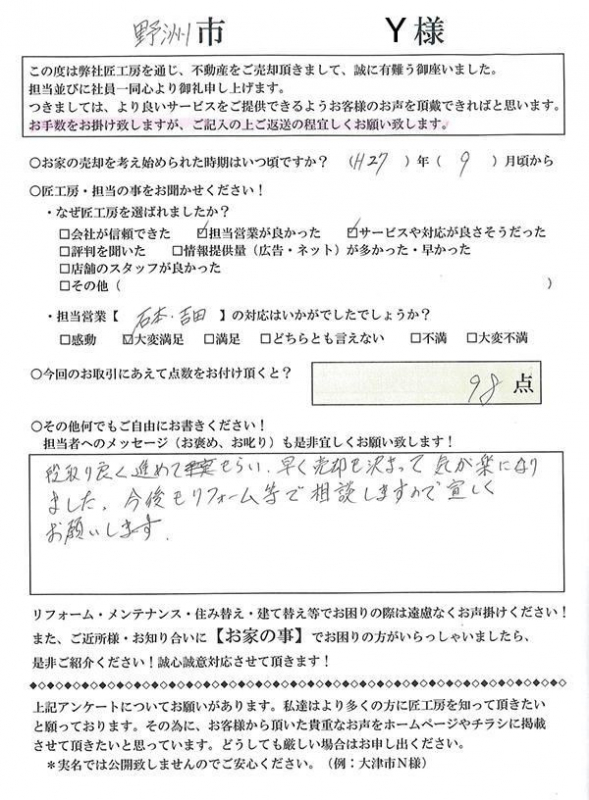 野洲市 Y様
この度は弊社匠工房を通じ、不動産をご売却頂きまして、誠に有難う御座いました。
担当並びに社員一同心より御礼申し上げます。
つきましては、より良いサービスをご提供できるようお客様のお声を頂戴できればと思います。
お手数をお掛け致しますが、ご記入の上ご返送の程宜しくお願い致します。
〇お家の売却を考え始められた時期はいつ頃ですか？（H27）年（9）月頃から
〇匠工房・担当の事をお聞かせください！
・なぜ匠工房を選ばれましたか？
□会社が信頼できた ☑担当営業が良かった ☑サービスや対応が良さそうだった
□評判を聞いた □情報提供量（広告・ネット）が多かった・早かった
□店舗のスタッフが良かった
□その他（ ）
・担当営業【石本・吉田】の対応はいかがでしたでしょうか？
□感動 ☑大変満足 □満足 □どちらとも言えない □不満 □大変不満
〇今回のお取引にあえて点数をお付け頂くと？ 98点
〇その他何でもご自由にお書きください！
担当者へのメッセージ（お褒め、お叱り）も是非宜しくお願い致します！
段取り良く進めてもらい、早く売却も決まって気が楽になり
ました。今後もリフォーム等で相談しますので宜しく
お願いします。
リフォーム・メンテナンス・住み替え・建て替え等でお困りの際は遠慮なくお声掛けください！
また、ご近所様・お知り合いに【お家の事】でお困りの方がいらっしゃいましたら、
是非ご紹介ください！誠心誠意対応させて頂きます！
上記アンケートについてお願いがあります。私達はより多くの方に匠工房を知って頂きたい
と願っております。その為に、お客様から頂いた貴重なお声をホームページやチラシに掲載
させて頂きたいと思っています。どうしても厳しい場合はお申し出ください。
＊実名では公開致しませんのでご安心ください。（例：大津市N様）